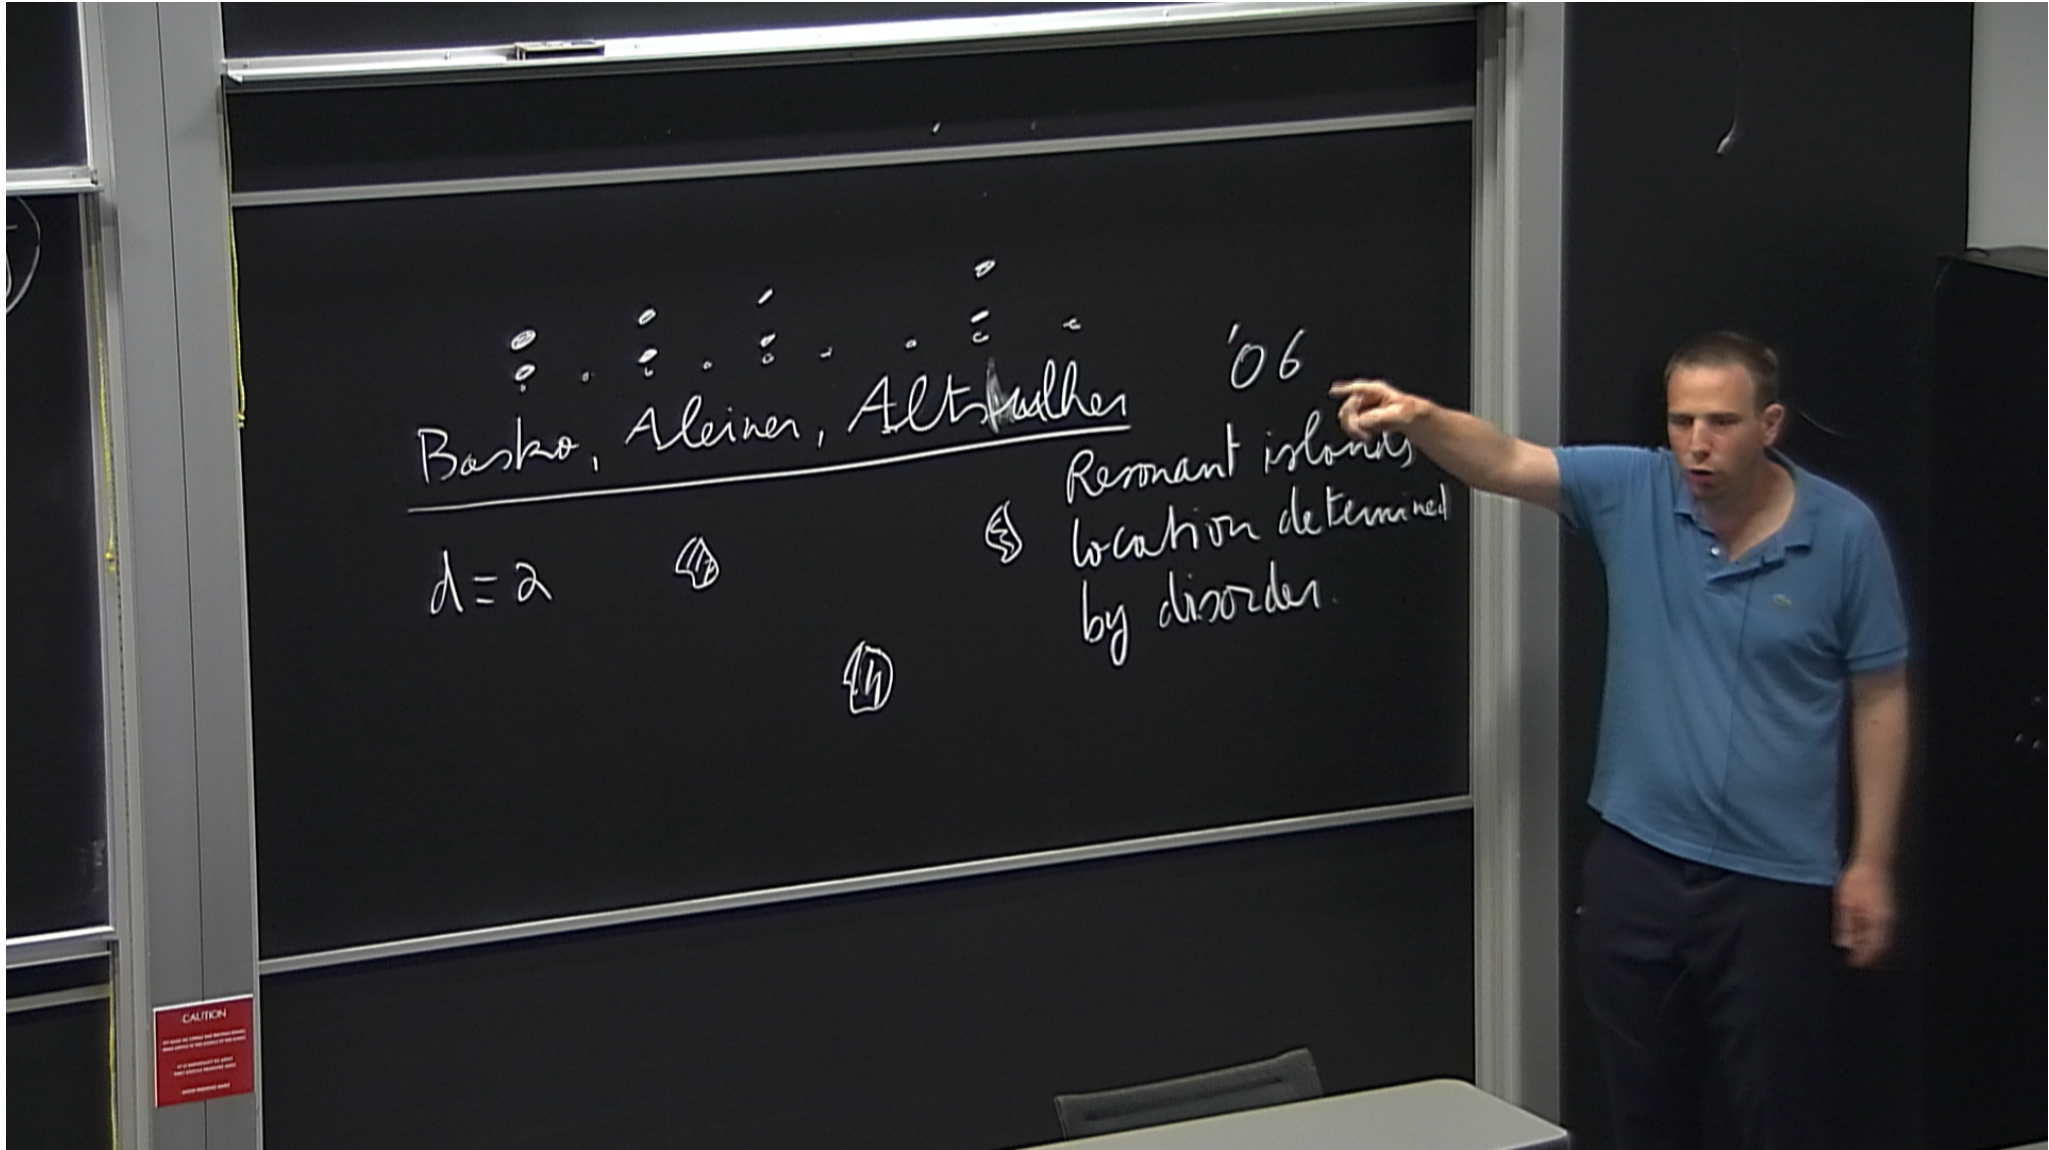 '06
Basko, Aleiner, Altshulher
Resonant islands
location determined
by disorder.
d=2
CAUTION